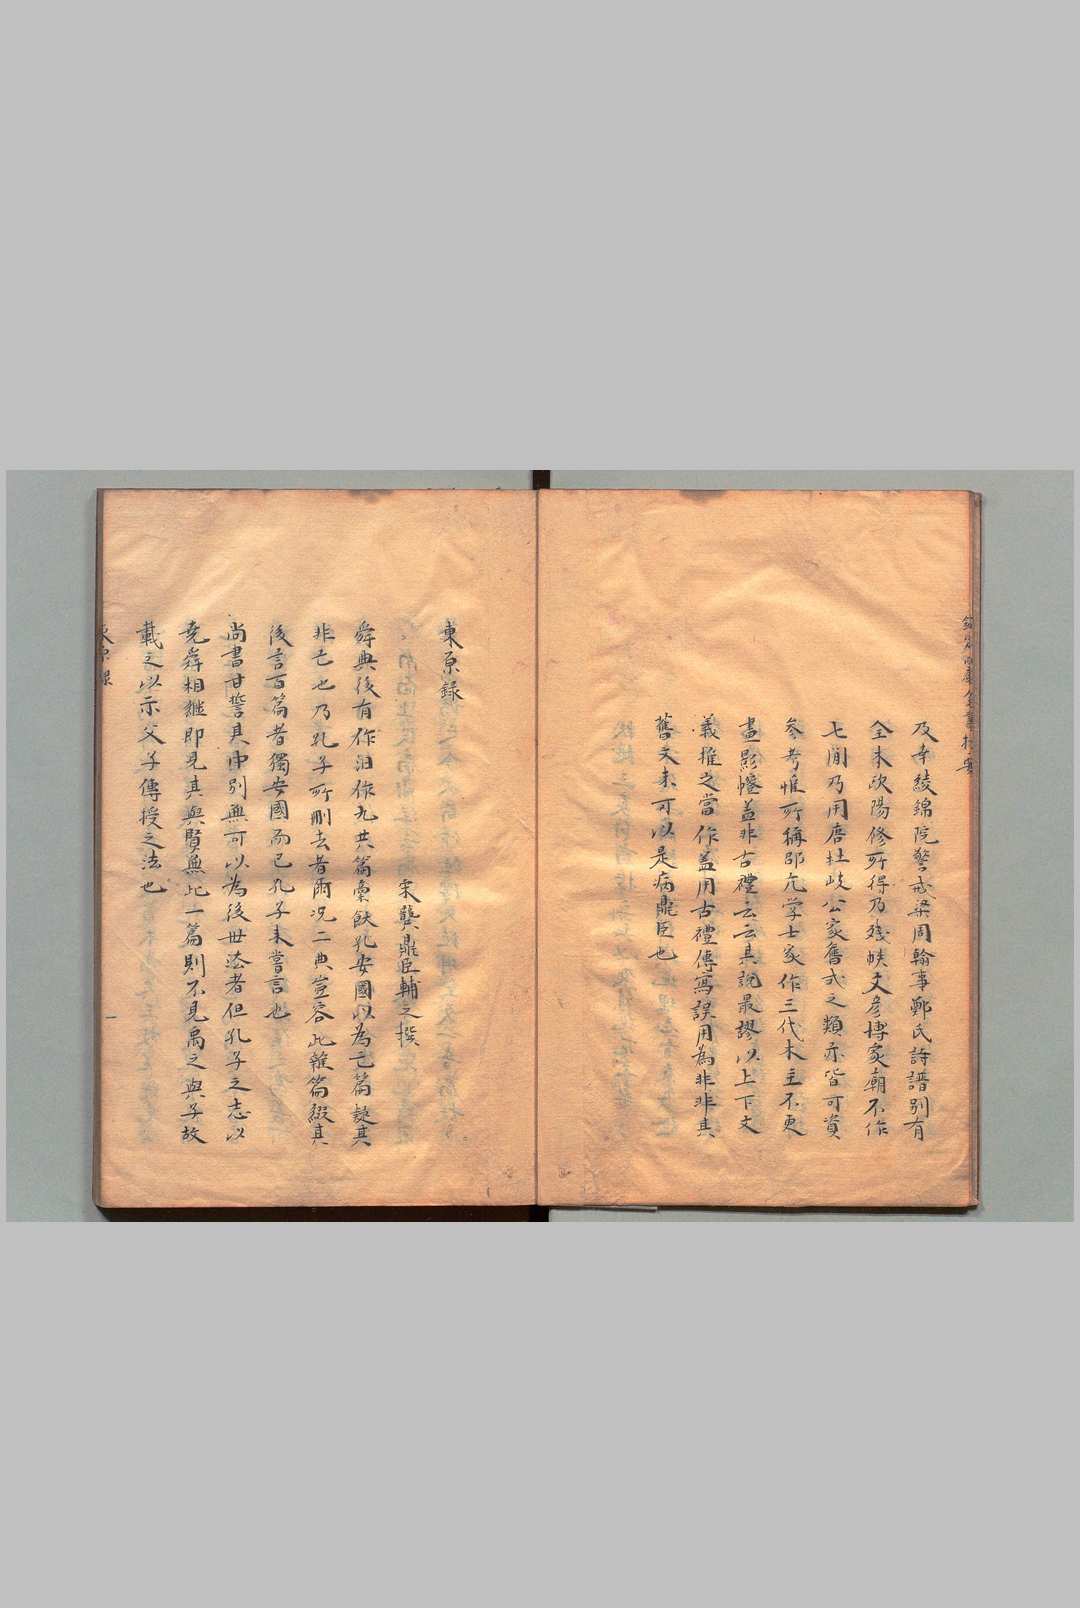 及幸綾錦院警戒梁周翰事鄭氏詩譜別有
全本欧陽修所得乃殘帙文彥博家廟不作
七間乃用唐杜岐公家舊式之類亦皆可資
參考惟所稱邵亢学士家作三代木主不更
畫影幢蓋非古禮云云其說最謬以上下文
義推之當作盖用古禮傳寫誤用為非非其
舊文未可以是病鼎臣也
東原録
宋龔鼎臣輔之撰
舜典後有作汨作九共篇稾飫孔安國以為亡篇疑其
非亡也乃孔子所刪去者爾况二典豈容此雜篇綴其
後言百篇者獨安國而已孔子未嘗言也
尚書甘誓具中別無可以為後世法者但孔子之志以
堯舜相継即見其與賢無此一篇則不見禹之與子故
載之以示父子傳授之法也
東原録
一